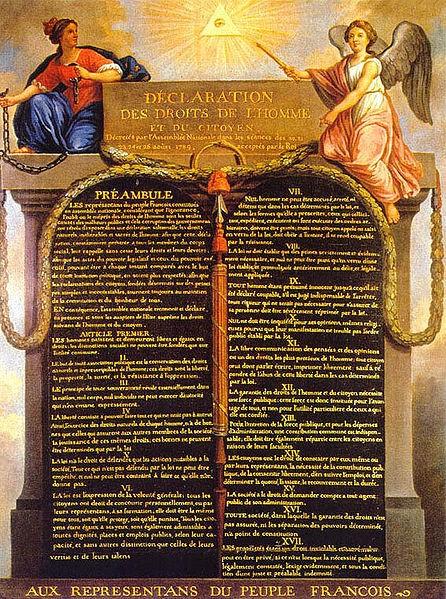 DÉCLARATION
DES DROITS DE L'HOMME
ET DU CITOYEN,
Décrétés par l'Assemblée Nationale dans les séances des 20, 21
23, 24 et 26 août 1789, acceptés par le Roi
PRÉAMBULE
LES représentans du peuple François, constitués
en assemblée nationale, considérant que l'ignorance,
l'oubli ou le mépris des droits de l'homme sont les seules
causes des malheurs publics et de la corruption des gouvernemens
ont résolu d'exposer dans une déclaration solemnelle, les droits
naturels, inaliénables et sacrés de l'homme; afin que cette décla-
ration, constamment présente à tous les membres du corps
social, leur rappelle sans cesse leurs droits et leurs devoirs;
afin que les actes du pouvoir législatif et ceux du pouvoir exé-
cutif, pouvant être à chaque instant comparés avec le but
de toute institution politique, en soient plus respectés; afin que
les réclamations des citoyens, fondées désormais sur des prin-
cipes simples et incontestables, tournent toujours au maintien
de la constitution et du bonheur de tous.
EN conséquence, l'assemblée nationale reconnoît et déclare,
en présence et sous les auspices de l'Etre suprême les droits
suivans de l'homme et du citoyen.
ARTICLE PREMIER.
LES hommes naissent et demeurent libres et égaux en
droits, les distinctions sociales ne peuvent être fondées que sur
l'utilité commune.
II.
LE but de toute association politique est la conservation des droits
naturels et imprescriptibles de l'homme; ces droits sont la liberté,
la propriété, la sureté, et la résistance à l'oppression.
III.
LE principe de toute souveraineté réside essentiellement dans
la nation, nul corps, nul individu ne peut exercer d'autorité
qui n'en émane expressément.
IV.
LA liberté consiste à pouvoir faire tout ce qui ne nuit pas à autrui
Ainsi, l'exercice des droits naturels de chaque homme, n'a de bor-
nes que celles qui assurent aux autres membres de la société
la jouissance de ces mêmes droits; ces bornes ne peuvent
être déterminées que par la loi
V.
LA loi n'a le droit de défendre que les actions nuisibles à la
société. Tout ce qui n'est pas défendu par la loi ne peut être
empêché, et nul ne peut être contraint à faire ce qu'elle n'or-
donne pas.
VI.
LA loi est l'expression de la volonté générale; tous les
citoyens ont droit de concourir personnellement, ou par
leurs représentans, à sa formation; elle doit être la même
pour tous, soit qu'elle protege, soit qu'elle punisse, Tous les cito-
yens étant égaux à ses yeux, sont également admissibles à
toutes dignités, places et emplois publics, selon leur ca-
pacité, et sans autres distinction que celles de leurs
vertus et de leurs talens
VII.
NUL homme ne peut être accusé, arrêté, ni
détenu que dans les cas déterminés par la loi, et
selon les formes qu'elle a prescrites, ceux qui sollici-
tent, expédient, exécutent ou font exécuter des ordres ar-
bitraires, doivent être punis; mais tout citoyen appelé ou saisi
en vertu de la loi, doit obéir à l'instant, il se rend coupable
par la résistance.
VIII.
LA loi ne doit établir que des peines strictement et évidem-
ment nécessaires, et nul ne peut être puni qu'en vertu d'une
loi établie et promulguée antérieurement au délit, et légale-
ment appliquée.
IX.
TOUT homme étant présumé innocent jusqu'à ce qu'il ait
été déclaré coupable, s'il est jugé indispensable de l'arrêter,
toute rigueur qui ne serait pas nécessaire pour s'assurer de
sa personne doit être sévèrement réprimée par la loi.
X.
NUL ne doit être inquiété pour ses opinions, mêmes religi-
euses pourvu que leur manifestation ne trouble pas l'ordre
public établi par la loi.
XI.
LA libre communication des pensées et des opinions
est un des droits les plus précieux de l'homme; tout citoy-
en peut donc parler, écrire, imprimer librement, sauf à ré-
pondre de l'abus de cette liberté dans les cas déterminés
par la loi.
XII.
LA garantie des droits de l'homme et du citoyen nécessite
une force publique; cette force est donc instituée pour l'avan-
tage de tous, et non pour l'utilité particuliere de ceux à qui
elle est confiée.
XIII.
POUR l'entretien de la force publique, et pour les dépenses
d'administration, une contribution commune est indispen-
sable; elle doit être également répartie entre les citoyens en
raison de leurs facultés.
XIV.
LES citoyens ont le droit de constater par eux même ou
par leurs représentans, la nécessité de la contribution pub-
lique, de la consentir librement, d'en suivre l'emploi, et d'en
déterminer la quotité, l'assiette, le recouvrement et la durée.
XV.
LA société a le droit de demander compte à tout agent
public de son administration.
XVI.
TOUTE société, dans laquelle la garantie des droits n'est
pas assurée, ni la séparation des pouvoirs déterminée,
n'a point de constitution
XVII.
LES propriétés étant un droit inviolable et sacré, nul ne
peut en être privé, si ce n'est lorsque la nécessité publique,
légalement constatée, l'exige évidemment, et sous la condi-
tion d'une juste et préalable indemnité.
AUX REPRESENTANS DU PEUPLE FRANCOIS